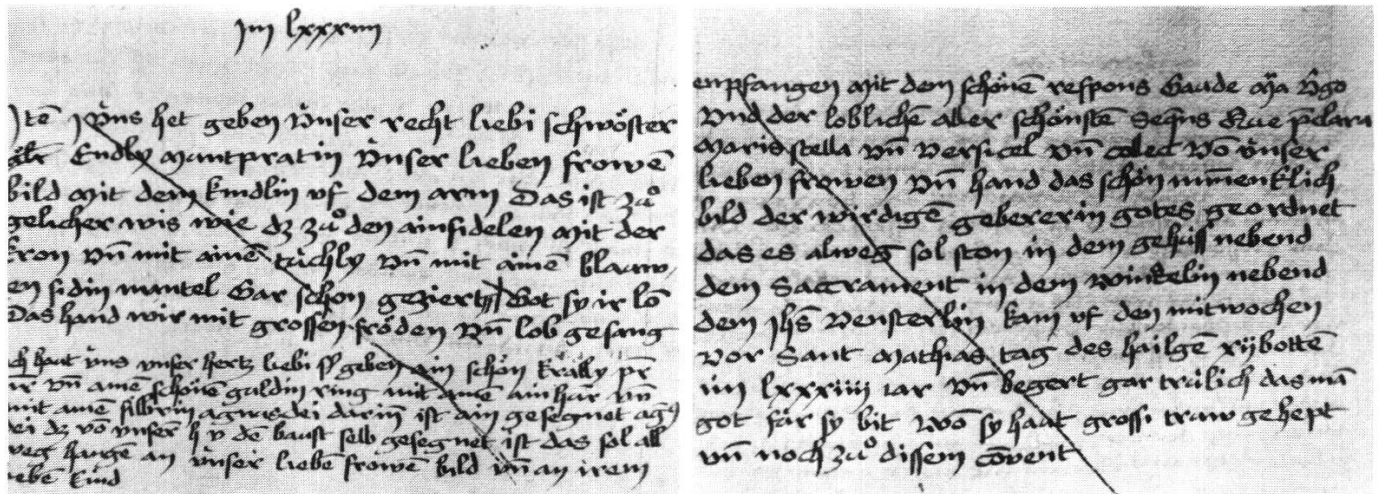 iiij lxxxiiij
Itē j v̈ns het geben v̈nser recht liebi schwöster
Endly Mantpratin v̈nser lieben frowē
bild mit dem kindlin vf dem arm Das ist zů
gelicher wis wie dz zů den ainsidelen mit der
kron vn̄ mit ainē tüchly vn̄ mit ainē blaaw
en sidin mantel Gar schon geziert Got sy ir lō
Das hand wir mit grossen fröden vn̄ lob gesang
och haut v̈ns vnser hertz liebi geben ain schön krälly pr̄
vn̄ ainē schönē guldin ring mit ainē ainhür vn̄
mit ainē silbrin agnus dei darin̄ ist ain gesegnet
dei dz vō vnserē h v̄ dē baust selb gesegnet ist das sol all
weg hangē an v̈nser liebē frowē bild vn̄ an irem
liebē kind
enpfangen mit dem schönē respons Gaude Ma v̄go
vnd der loblichē aber schönstē Seqns Aue p̄clara
Maris stella vn̄ versicel vn̄ colec vō v̈nser
lieben frowen vn̄ hand das schön minenklich
bild der wirdigē gebererin gotes geordnet
das es alweg sol ston in dem gehüß nebend
dem Sacrament in dem winkelin nebend
dem Jhs̄ vensterlin kam vf den mitwochen
vor Sant Mathias tag des hailgē xijbottē
iiij lxxxiiij iar vn̄ begert gar trülich das mā
got für sy bit wō sy haat grossi traw gehept
vn̄ noch zů dissem cōvent